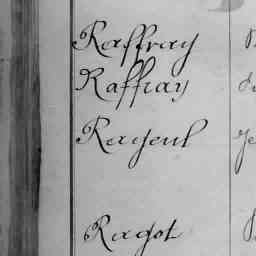 Raffray
Raffray
Rageul
Ragot